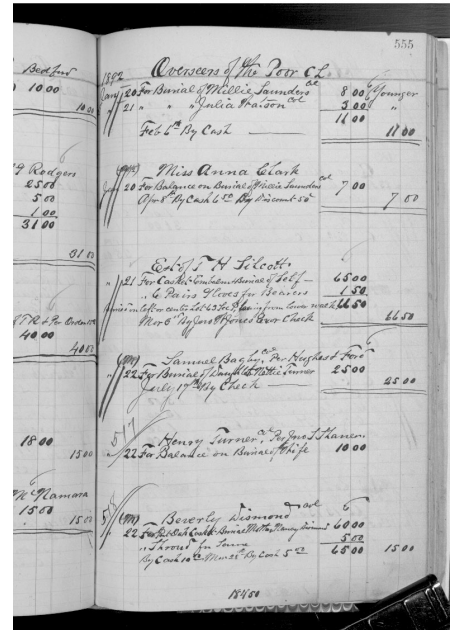 Bedford
10 00
10 00
Rodgers
25 00
5 00
1 00
31 00
31 00
40 00
40 00
18 00
15 00
McNamara
15 00
15 00
555
1892 Overseers of the Poor C L
Jany 20 For Burial of Millie Saunders col 8 00 Younger
" 21 " " " Julia Watson col 3 00 "
11 00
Feby 6th By Cash 11 00
Miss Anna Clark
Jan 20 For Balance on Burial of Millie Saunders col 7 00
Apr 8th By Cash 6 50 By Discount 50 7 00
Est of T H Silcott
" 21 For Casket Embalmt & Burial of Self 65 00
" 6 Pairs Gloves for Bearers 1 50
66 50
Mar 8th By Jones Check 66 50
Samuel Bagby, col Per Hughes & Ford
22 For Burial of Daughter Nettie Turner 25 00
July 19th By Check 25 00
517 Henry Turner, col Per Jno S Shaner
22 For Balance on Burial of Wife 10 00
518 Beverly Dismond col
22 For Casket & Burial Mother Nancy Dismond 60 00
" Shroud for Same 5 00
By Cash 10 00 By Cash 5 00 65 00 15 00
184 50